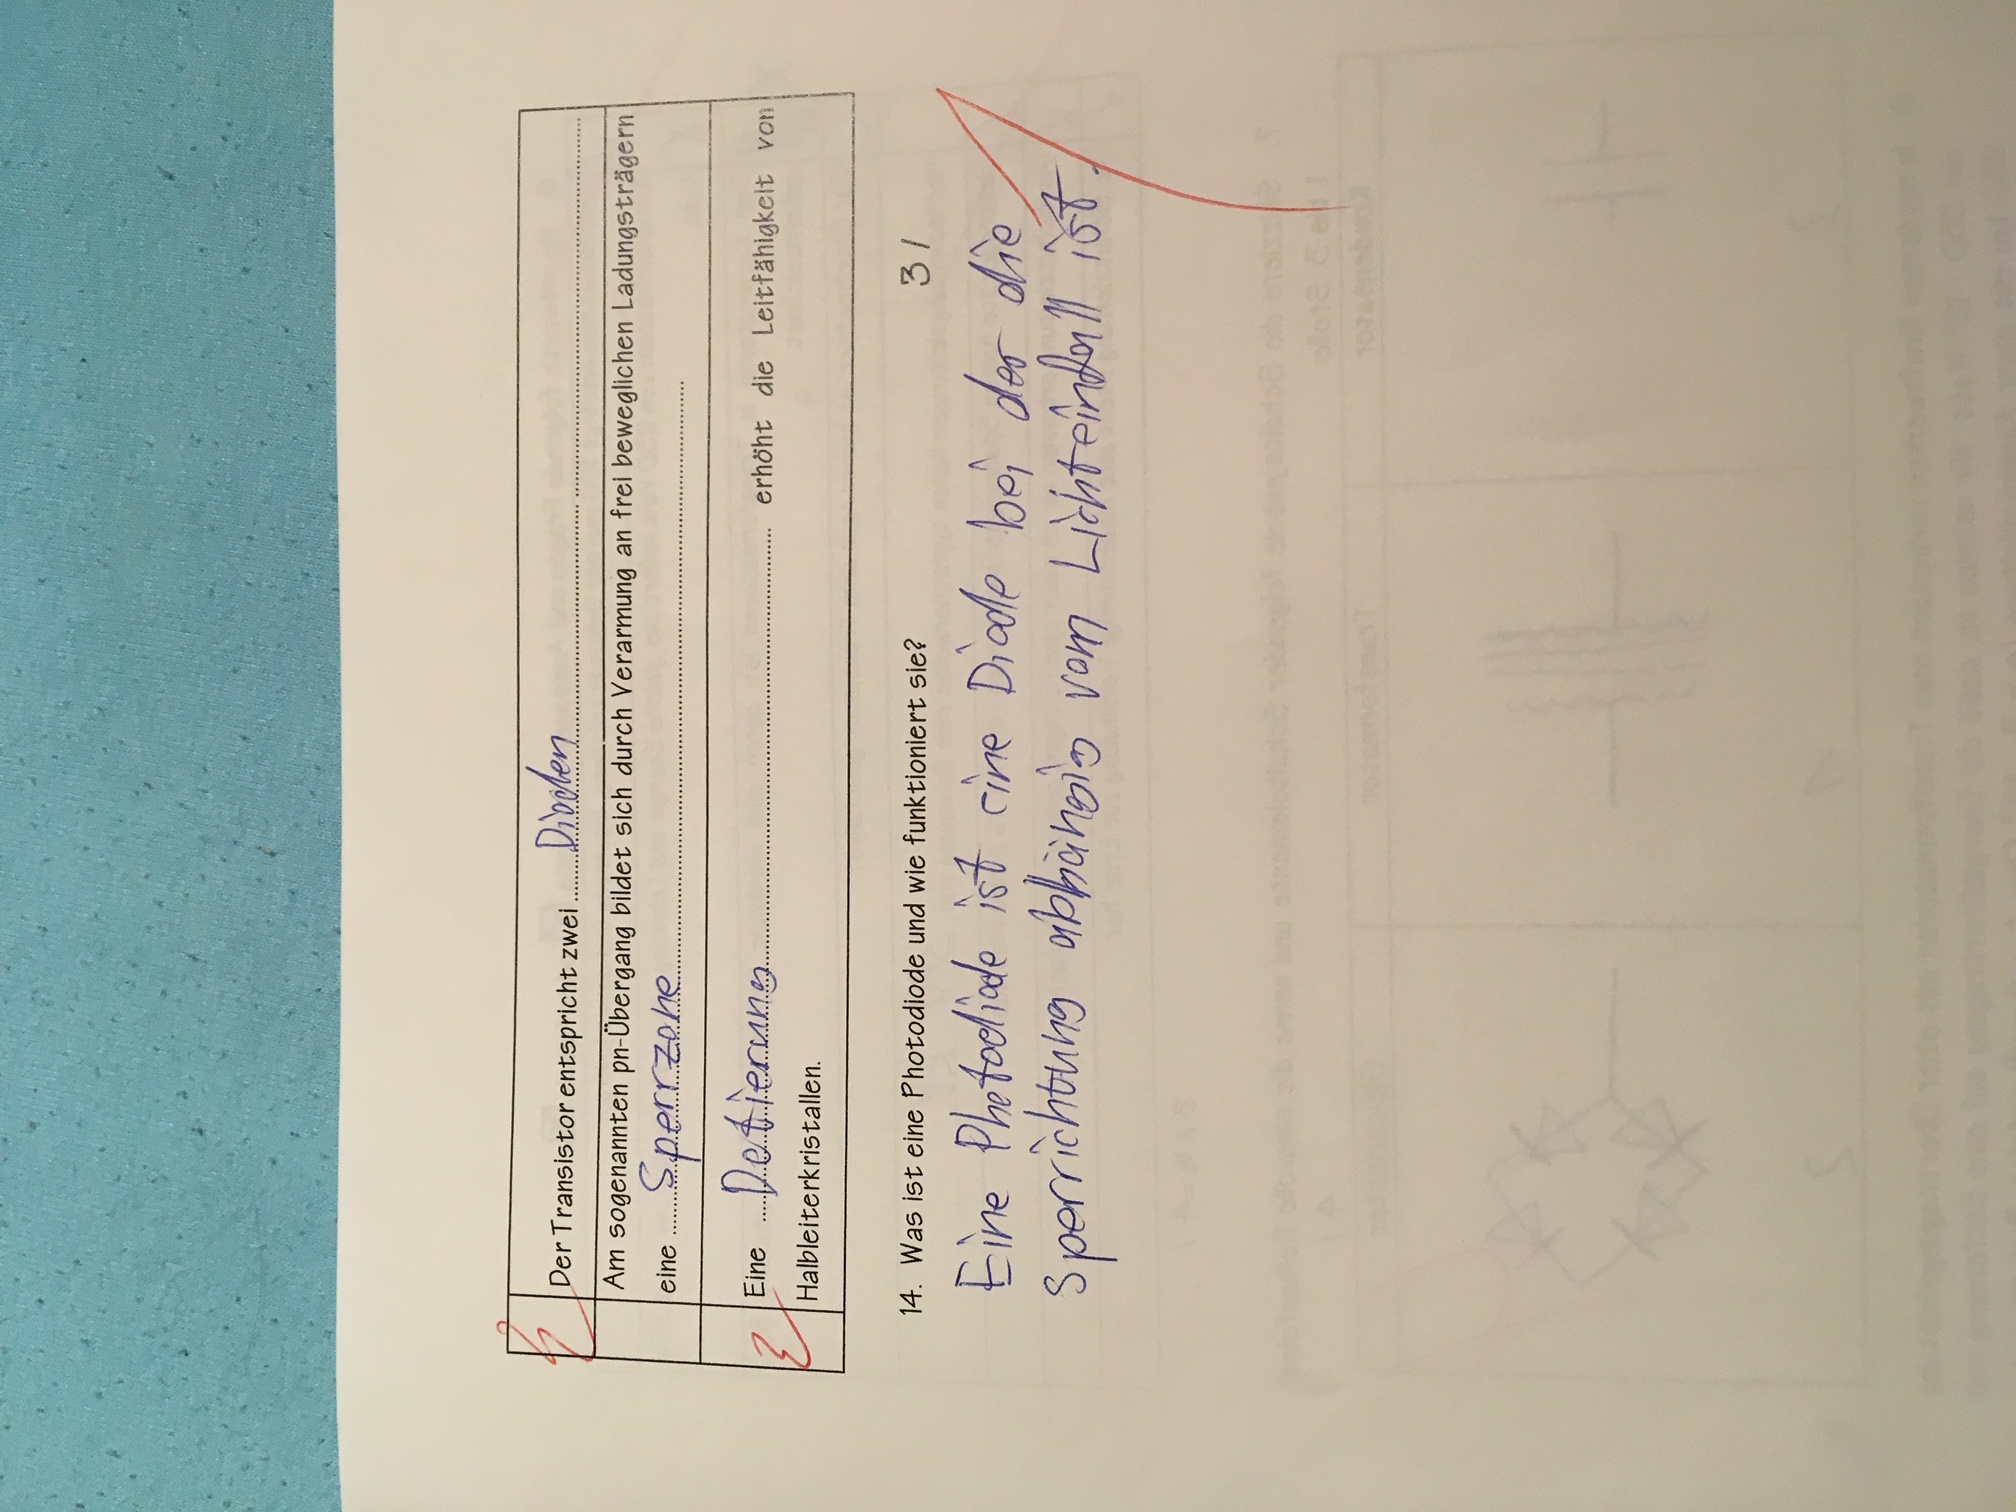 Der Transistor entspricht zwei Dioden
Am sogenannten pn-Übergang bildet sich durch Verarmung an frei beweglichen Ladungsträgern
eine Sperrzone
Eine Dotierung erhöht die Leitfähigkeit von
Halbleiterkristallen.
14. Was ist eine Photodiode und wie funktioniert sie? 3 /
Eine Photodiode ist eine Diode bei der die
Sperrichtung abhängig vom Lichteinfall ist.